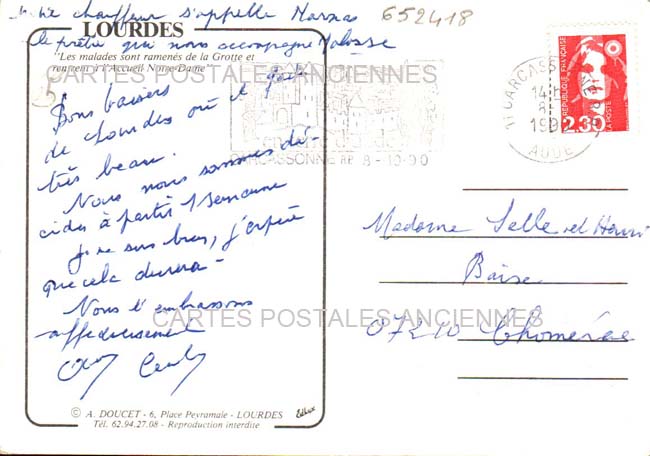 chauffeur s'appelle Marnas
652418
le prêtre qui nous accompagne Malosse
LOURDES
"Les malades sont ramenés de la Grotte et
rentrent à l'Accueil Notre-Dame"
CARTES POSTALES ANCIENNES
Bons baisers
de Lourdes où il fait
très beau.
Nous nous sommes dé-
cidés à partir 1 semaine
Je me sens bien, j'espère
que cela durera -
Nous t'embrassons
affectueusement
CARTES POSTALES ANCIENNES
© A. DOUCET - 6, Place Peyramale - LOURDES
Tél. 62.94.27.08 - Reproduction interdite
CARCASSONNE RP 8-10-90
11 CARCASS
14H
8
199
AUDE
RÉPUBLIQUE FRANÇAISE
LA POSTE
2,30
Madame Selle et Henri
Baise
07210 Chomérac